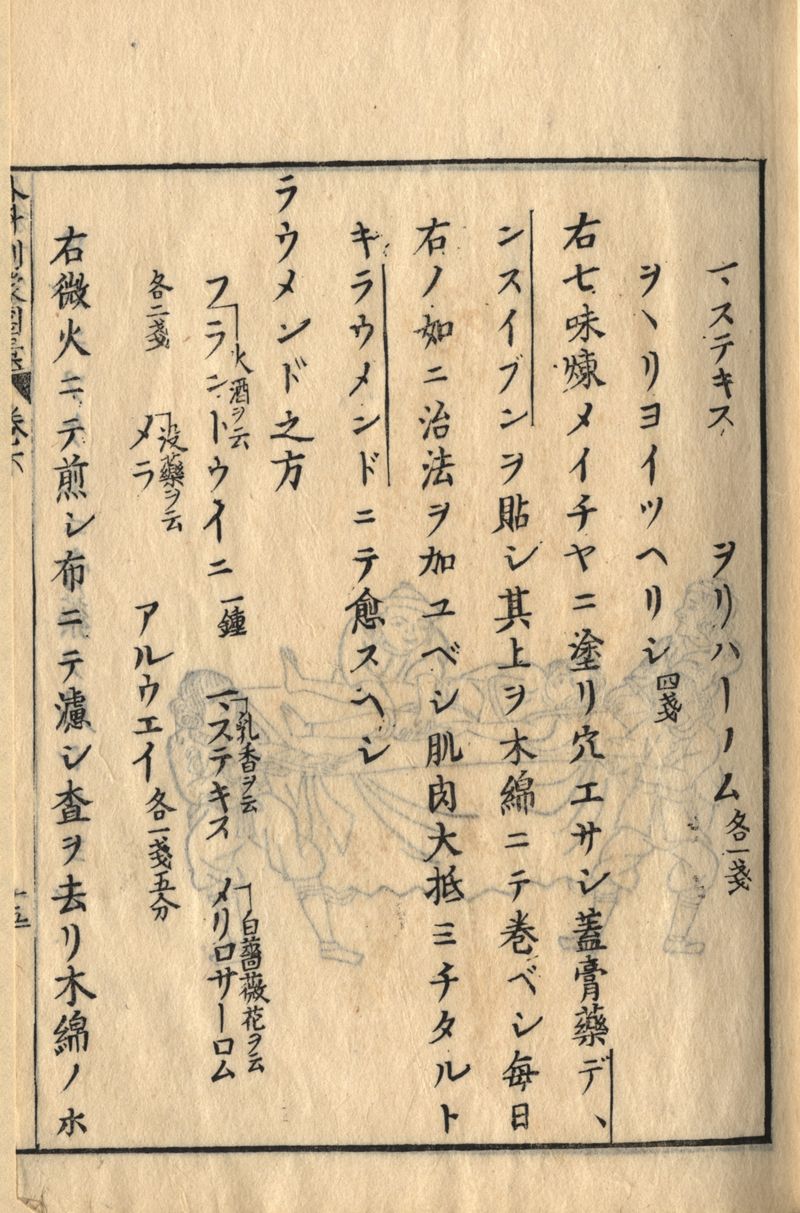 マステキス ヲリハーノム 各一戔
ヲヽリヨイツヘリシ 四戔
右七味煉メイチヤニ塗リ穴エサシ蓋膏藥デヽ
ンスイブンヲ貼シ其上ヲ木綿ニテ巻ベシ毎日
右ノ如ニ治法ヲ加ユベシ肌肉大抵ミチタルト
キラウメンドニテ愈スヘシ
ラウメンド之方
フラントウイニ 火酒ヲ云 一鍾 マステキス 乳香ヲ云 メリロサーロム 白薔薇花ヲ云
各二戔 メラ 没藥ヲ云 アルウエイ 各一戔五分
右微火ニテ煎シ布ニテ濾シ査ヲ去リ木綿ノホ
卷六
十五